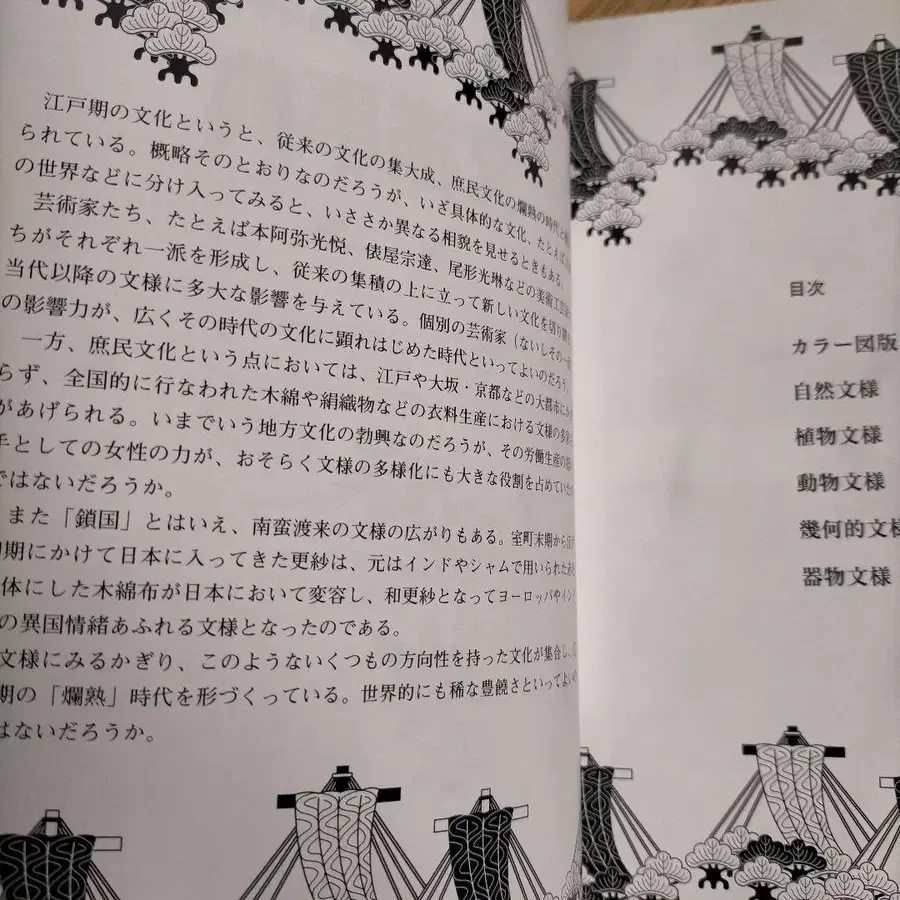 江戸期の文化というと、従来の文化の集大成、庶民文化の爛熟の時代と
られている。概略そのとおりなのだろうが、いざ具体的な文化、たとえば
の世界などに分け入ってみると、いささか異なる相貌を見せるときもある。
芸術家たち、たとえば本阿弥光悦、俵屋宗達、尾形光琳などの美術工芸
ちがそれぞれ一派を形成し、従来の集積の上に立って新しい文化を切り
当代以降の文様に多大な影響を与えている。個別の芸術家（ないしその一
の影響力が、広くその時代の文化に顕れはじめた時代といってよいのだろう。
一方、庶民文化という点においては、江戸や大坂・京都などの大都市に
らず、全国的に行なわれた木綿や絹織物などの衣料生産における文様の多
があげられる。いまでいう地方文化の勃興なのだろうが、その労働生産の
手としての女性の力が、おそらく文様の多様化にも大きな役割を占めていた
ではないだろうか。
また「鎖国」とはいえ、南蛮渡来の文様の広がりもある。室町末期から江
初期にかけて日本に入ってきた更紗は、元はインドやシャムで用いられた
体にした木綿布が日本において変容し、和更紗となってヨーロッパやイン
の異国情緒あふれる文様となったのである。
文様にみるかぎり、このようないくつもの方向性を持った文化が集合し、
期の「爛熟」時代を形づくっている。世界的にも稀な豊饒さといってよいの
はないだろうか。
目次
カラー図版
自然文様
植物文様
動物文様
幾何的文様
器物文様